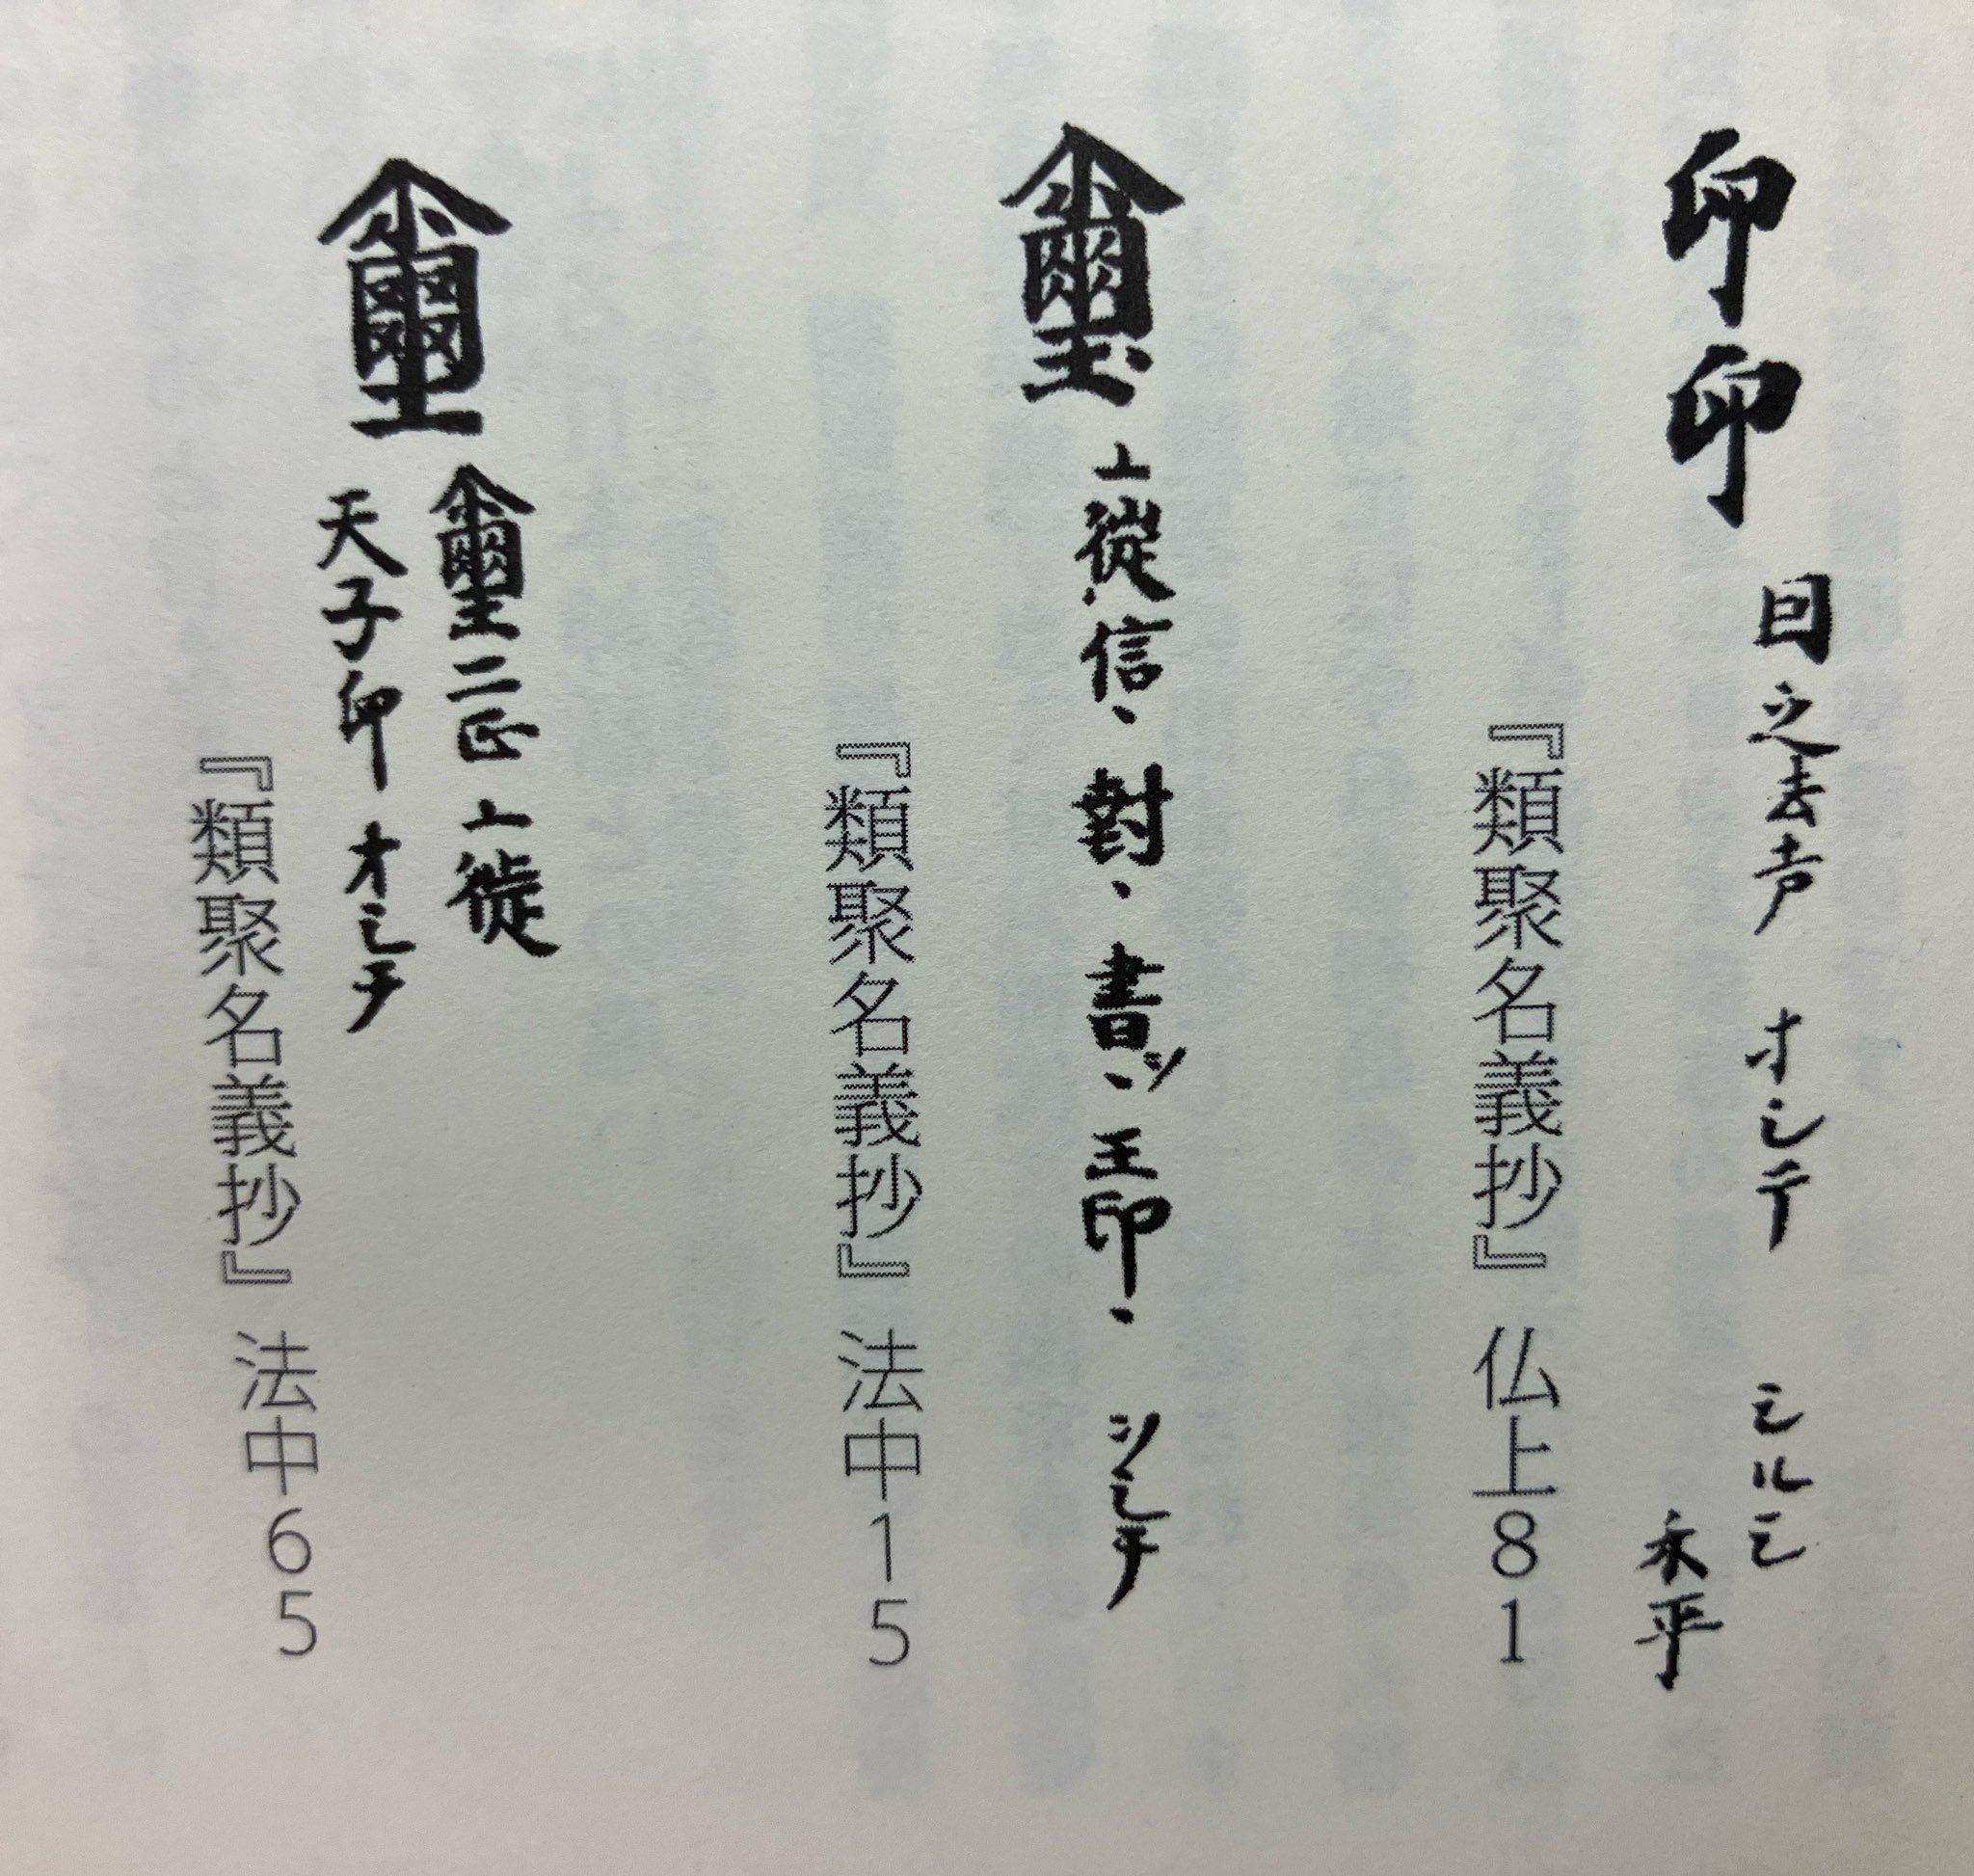 印印 因之去声 オシテ シルシ
禾平
『類聚名義抄』仏上81
璽 亠徙 信、封、書、シ 王印、 シルシ
『類聚名義抄』法中15
壐 璽二正 亠徙
天子印 オシテ
『類聚名義抄』法中65